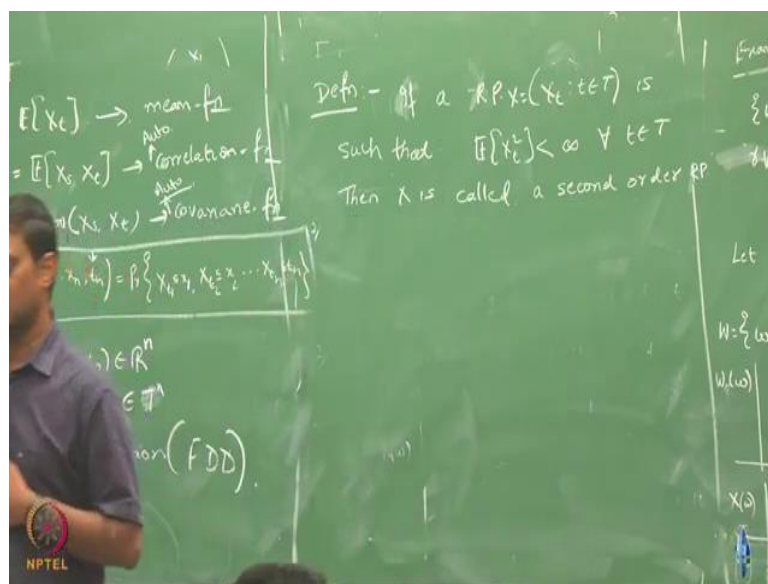 E[Xt] → mean-fn
= E[Xs, Xt] → Auto correlation-fn
(Xs, Xt) → Auto covariance-fn
xn, tn) = Pr{Xt1≤x1, Xt2≤x2 ...
) ∈ R^n
∈ T^n
(FDD).
Defn:- If a RP. X=(Xt : t∈T) is
such that E[Xt^2] < ∞ ∀ t∈T
Then X is called a second order RP
Let
W={ω
W1(ω)
X(ω)
NPTEL